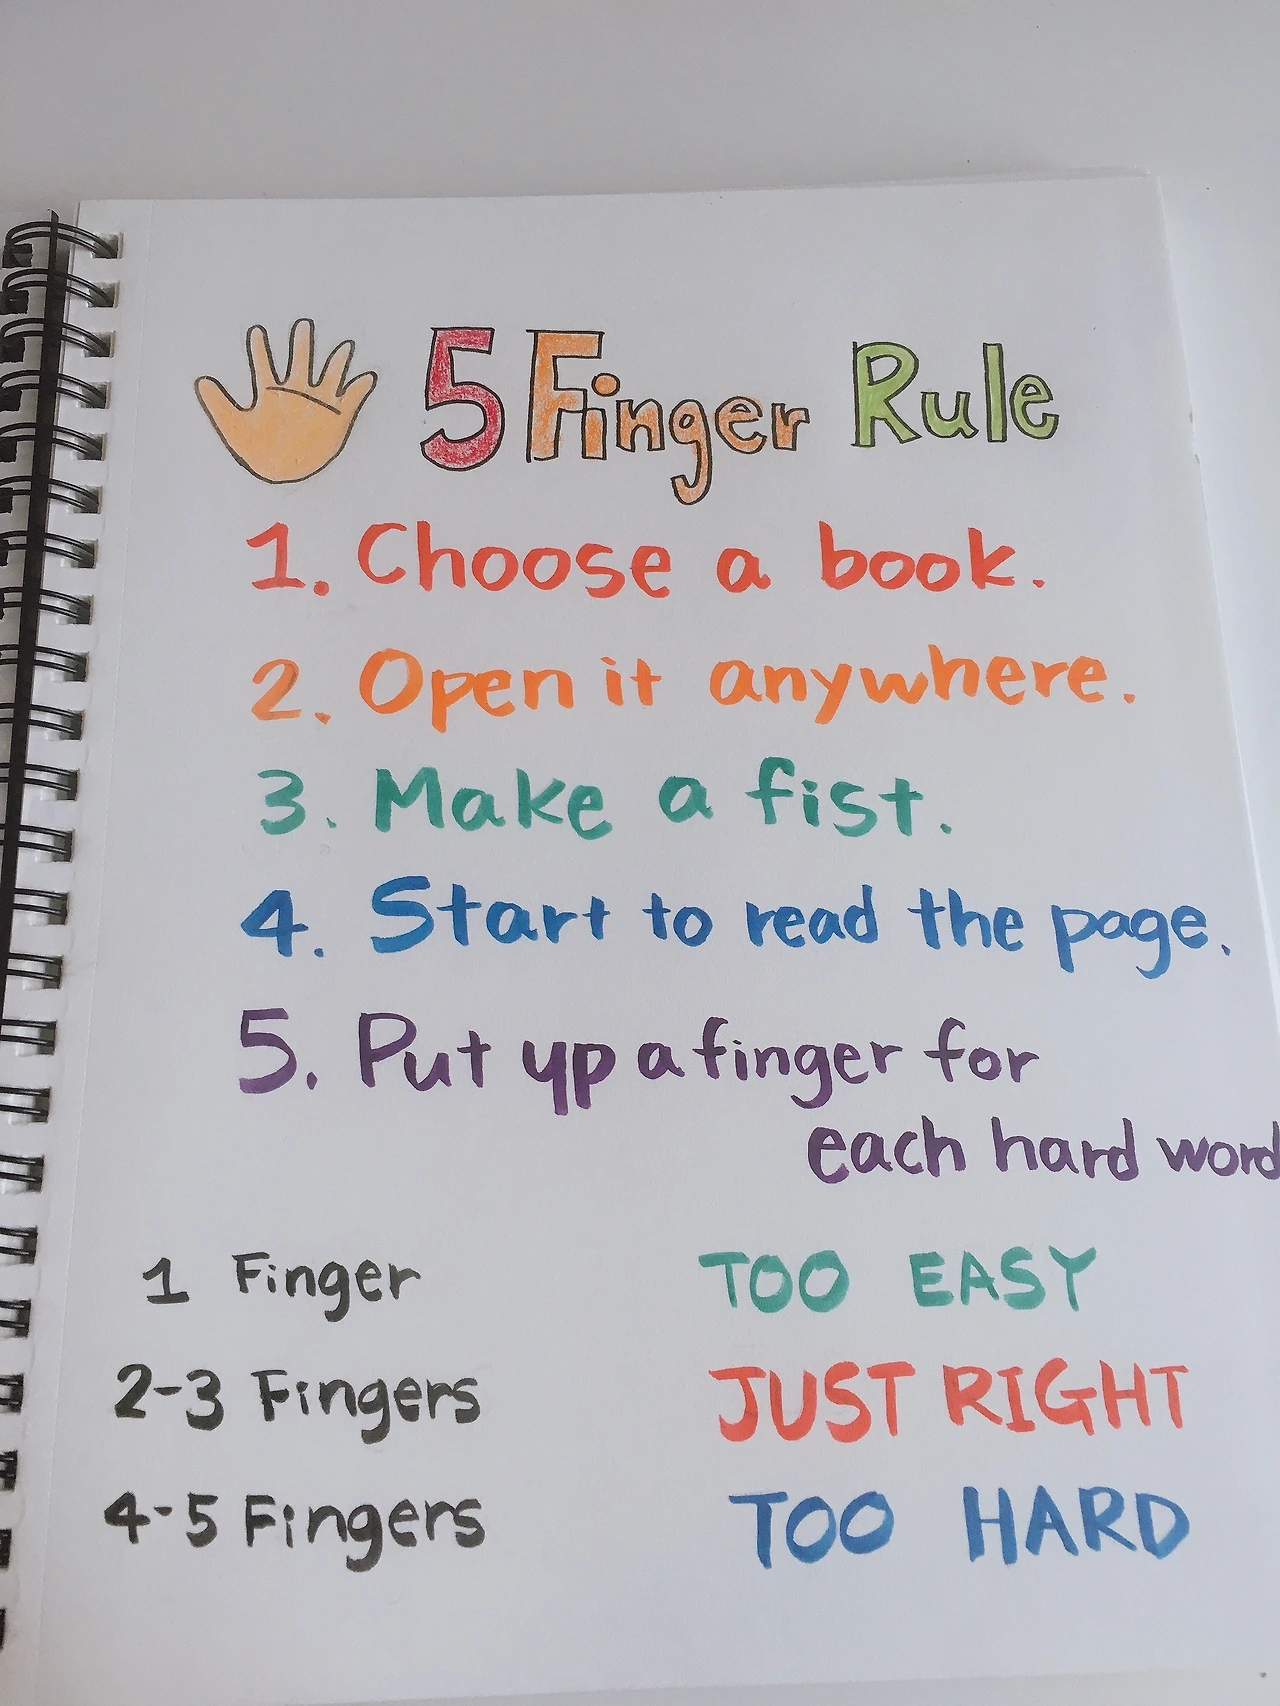 5 Finger Rule
1. Choose a book.
2. Open it anywhere.
3. Make a fist.
4. Start to read the page.
5. Put up a finger for
each hard word
1 Finger TOO EASY
2-3 Fingers JUST RIGHT
4-5 Fingers TOO HARD